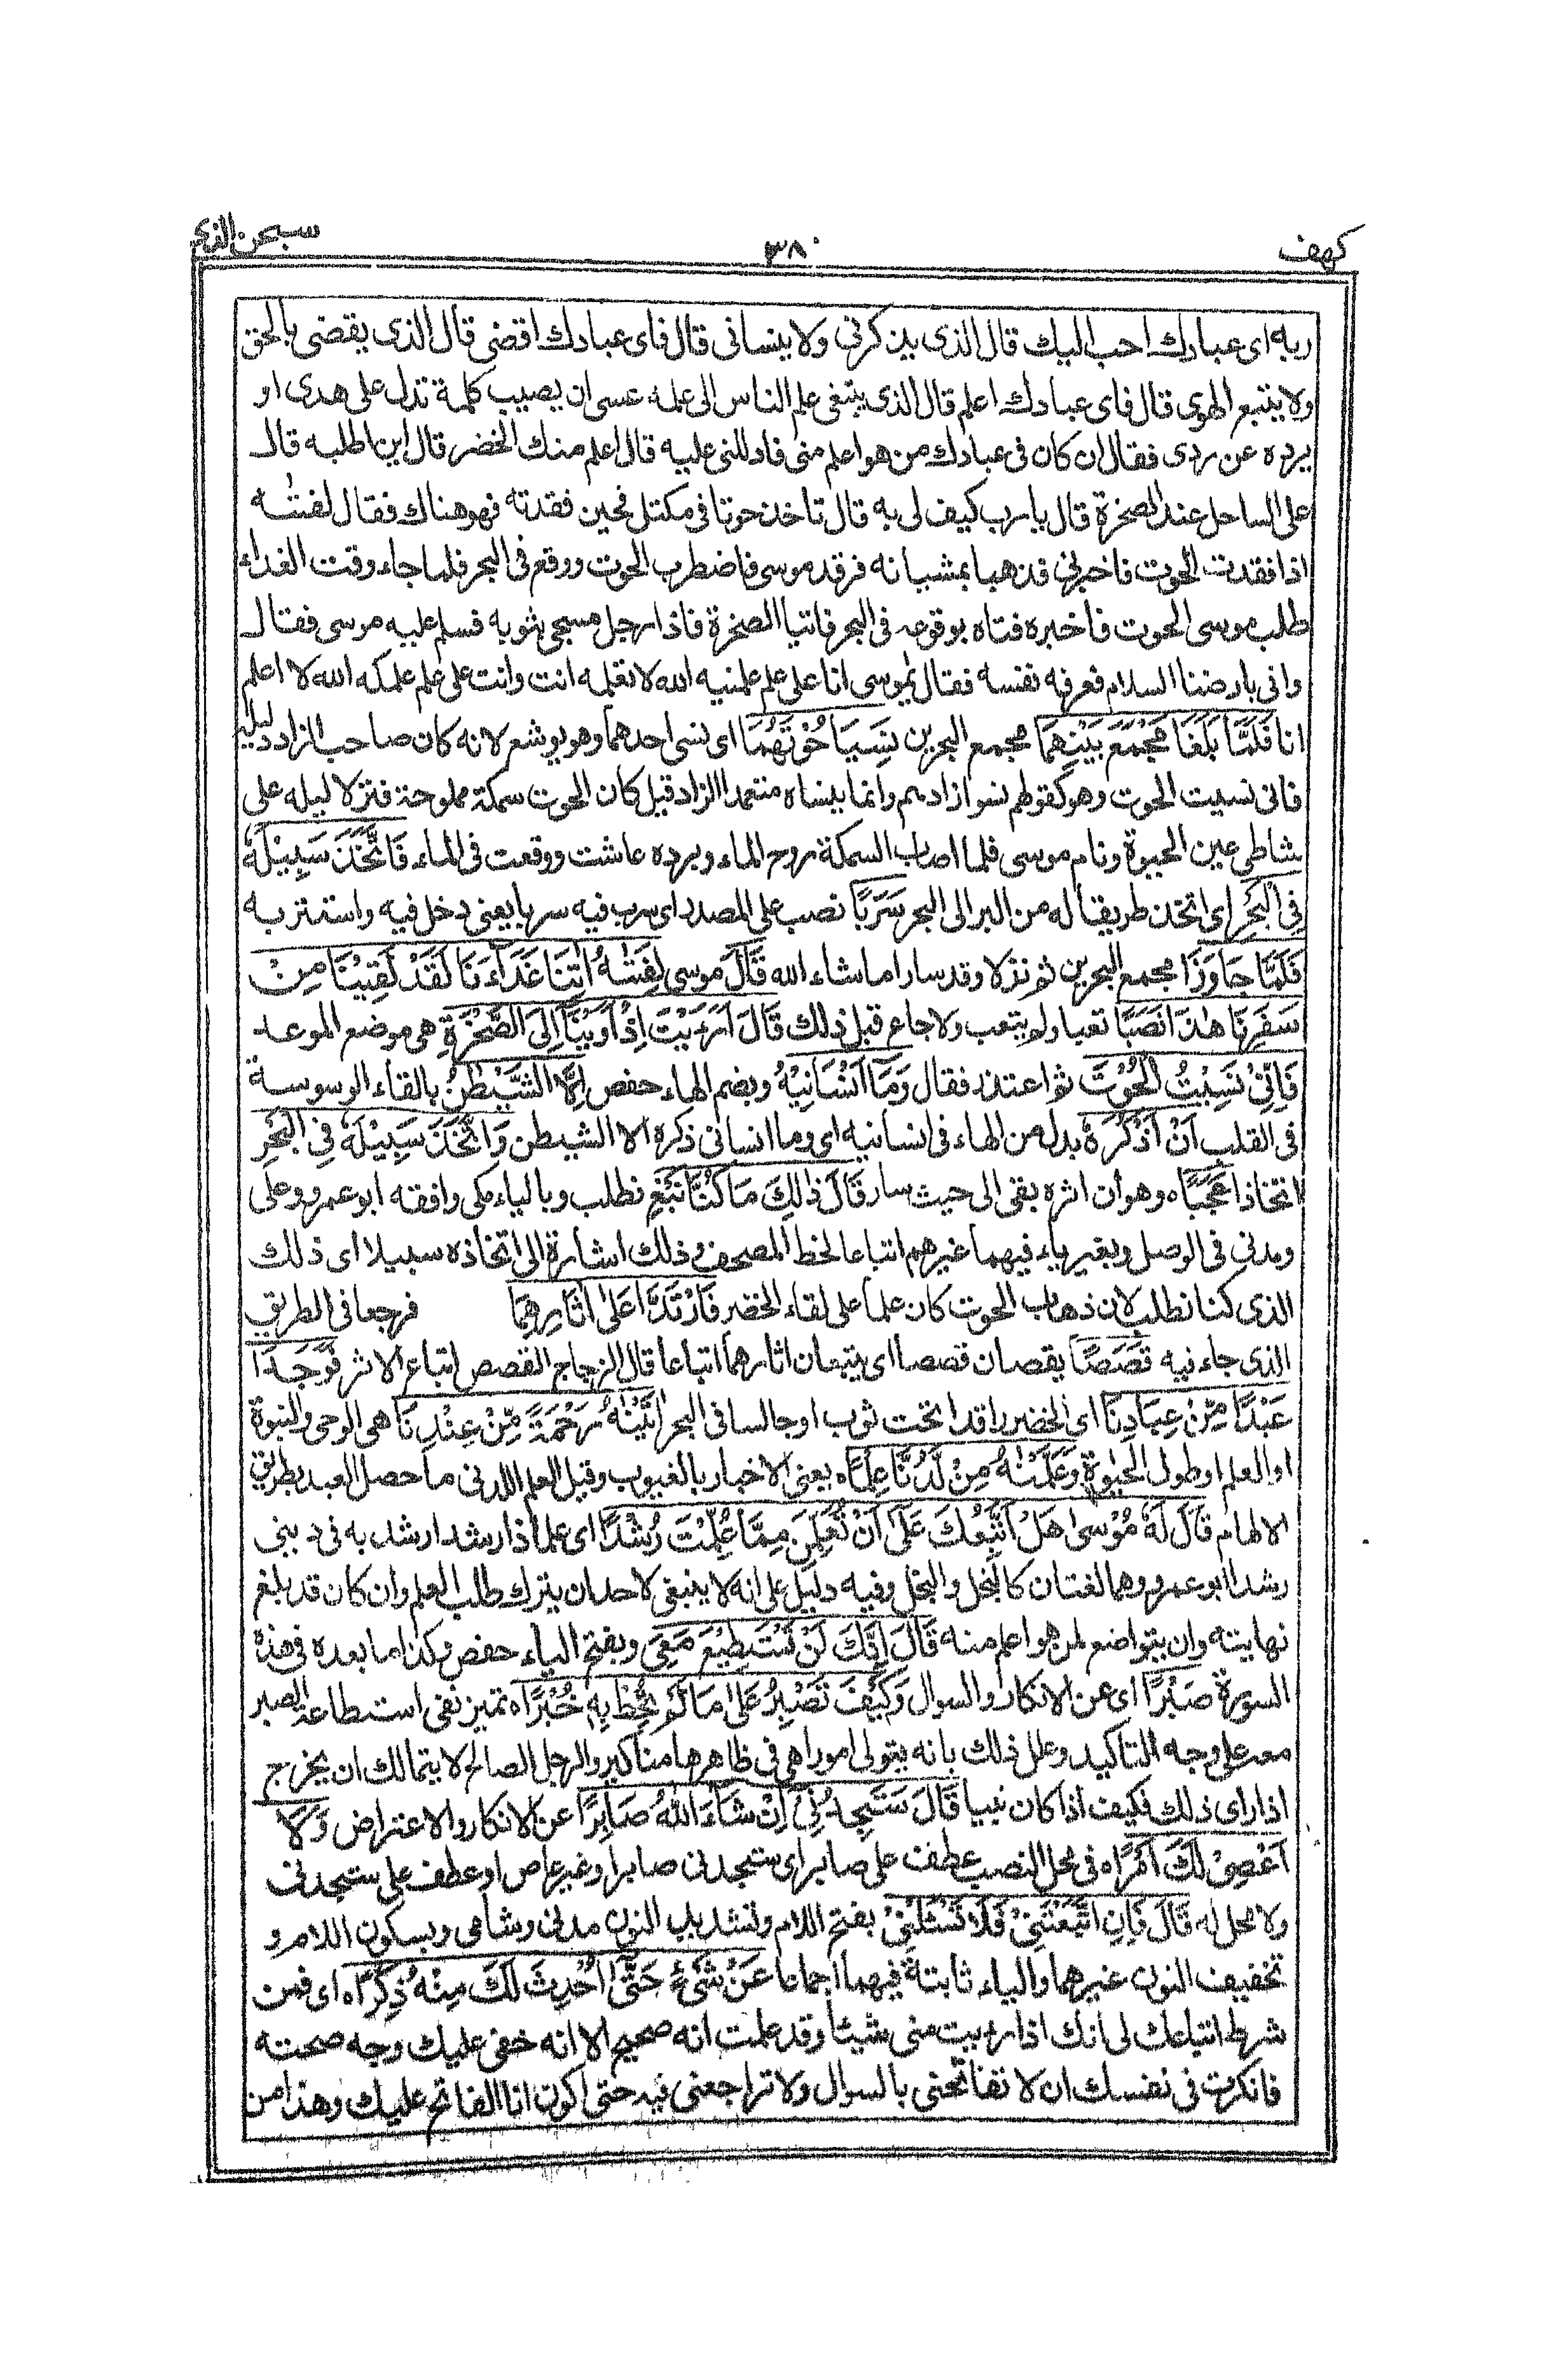 كهف ٣٨٠ سبحن الذى
ربه اى عبادك احب اليك قال الذى يذكرنى ولا ينسانى قال فاى عبادك اقضى قال الذى يقضى بالحق
ولا يتبع الهوى قال فاى عبادك اعلم قال الذى يبتغى علم الناس الى علمه عسى ان يصيب كلمة تدل على هدى او
يرده عن ردى فقال ان كان فى عبادك من هو اعلم منى فادللنى عليه قال اعلم منك الخضر قال اين اطلبه قال
على الساحل عند الصخرة قال يا رب كيف لى به قال تاخذ حوتا فى مكتل فحين فقدته فهو هناك فقال لفتٰه
اذا فقدت الحوت فاخبرنى فذهبا يمشيانه فرقد موسى فاضطرب الحوت ووقع فى البحر فلما جاء وقت الغداء
طلب موسى الحوت فاخبره فتاه بوقوعه فى البحر فاتيا الصخرة فاذا رجل مسجى بثوبه فسلم عليه موسى فقال
وانى بارضنا السلام فعرفه نفسه فقال يموسى انا على علم علمنيه الله لا تعلمه انت وانت على علم علمكه الله لا اعلم
انا فَلَمَّا بَلَغَا مَجْمَعَ بَيْنِهِمَا مجمع البحرين نَسِيَا حُوْتَهُمَا اى نسى احدهما وهو يوشع لانه كان صاحب الزاد دليله
فانى نسيت الحوت وهو كقولهم نسوا زادهم وانما ينساه متعمد الزاد قيل كان الحوت سمكة مملوحة فنزلا ليله على
شاطى عين الحيوة ونام موسى فلما اصاب السمكة روح الماء وبرده عاشت ووقعت فى الماء فَاتَّخَذَ سَبِيْلَهٗ
فِى الْبَحْرِ اى اتخذ طريقا له من البر الى البحر سَرَبًا نصب على المصدر اى سرب فيه سربا يعنى دخل فيه واستتر به
فَلَمَّا جَاوَزَا مجمع البحرين ثم نزلا وقد سارا ما شاء الله قَالَ موسى لِفَتٰهُ اٰتِنَا غَدَآءَنَا لَقَدْ لَقِيْنَا مِنْ
سَفَرِنَا هٰذَا نَصَبًا تعبا ولم يتعب ولا جاع قبل ذلك قَالَ اَرَءَيْتَ اِذْ اَوَيْنَآ اِلَى الصَّخْرَةِ هى موضع الموعد
فَاِنِّىْ نَسِيْتُ الْحُوْتَ ثم اعتذر فقال وَمَآ اَنْسَانِيْهُ وبضم الهاء حفص اِلَّا الشَّيْطٰنُ بالقاء الوسوسة
فى القلب اَنْ اَذْكُرَهٗ بدل من الهاء فى انسانيه اى وما انسانى ذكره الا الشيطن وَاتَّخَذَ سَبِيْلَهٗ فِى الْبَحْرِ
اتخاذا عَجَبًاه وهو ان اثره بقى الى حيث سار قَالَ ذٰلِكَ مَا كُنَّا نَبْغِ نطلب وبالياء مكى وافقه ابو عمرو وعلى
ومدنى فى الوصل وبغير ياء فيهما غيرهم اتباعا لخط المصحف وذلك اشارة الى اتخاذه سبيلا اى ذلك
الذى كنا نطلب لان ذهاب الحوت كان علما على لقاء الخضر فَارْتَدَّا عَلٰٓى اٰثَارِهِمَا فرجعا فى الطريق
الذى جاء فيه قَصَصًا يقصان قصصا اى يتبعان اثارهما اتباعا قال الزجاج القصص اتباع الاثر فَوَجَدَا
عَبْدًا مِّنْ عِبَادِنَآ اى الخضر راقدا تحت ثوب او جالسا فى البحر اٰتَيْنٰهُ رَحْمَةً مِّنْ عِنْدِنَا هى الوحى والنبوة
او العلم او طول الحيوة وَعَلَّمْنٰهُ مِنْ لَّدُنَّا عِلْمًاه يعنى الاخبار بالغيوب وقيل العلم اللدنى ما حصل للعبد بطريق
الالهام قَالَ لَهٗ مُوْسٰى هَلْ اَتَّبِعُكَ عَلٰٓى اَنْ تُعَلِّمَنِ مِمَّا عُلِّمْتَ رُشْدًا اى علما ذا رشد ارشد به فى دينى
رشدا ابو عمرو وهما لغتان كالبُخل والبَخل وفيه دليل على انه لا ينبغى لاحد ان يترك طلب العلم وان كان قد بلغ
نهايته وان يتواضع لمن هو اعلم منه قَالَ اِنَّكَ لَنْ تَسْتَطِيْعَ مَعِىَ وبفتح الياء حفص وكذا ما بعده فى هذه
السورة صَبْرًا اى عن الانكار والسوال وَكَيْفَ تَصْبِرُ عَلٰى مَا لَمْ تُحِطْ بِهٖ خُبْرًاه تميز نفى استطاعة الصبر
معه على وجه التاكيد وعلل ذلك بانه يتولى امورا هى فى ظاهرها مناكير والرجل الصالح لا يتمالك ان يخرج
اذا راى ذلك فكيف اذا كان نبيا قَالَ سَتَجِدُنِىْٓ اِنْ شَآءَ اللّٰهُ صَابِرًا عن الانكار والاعتراض وَّلَآ
اَعْصِىْ لَكَ اَمْرًاه فى محل النصب عطف على صابرا اى ستجدنى صابرا وغير عاص او عطف على ستجدنى
ولا محل له قَالَ فَاِنِ اتَّبَعْتَنِىْ فَلَا تَسْئَلْنِىْ بفتح اللام وتشديد النون مدنى وشامى وبسكون اللام و
تخفيف النون غيرهما والياء ثابتة فيهما اجماعا عَنْ شَىْءٍ حَتّٰٓى اُحْدِثَ لَكَ مِنْهُ ذِكْرًاه اى فمن
شرط اتباعك لى انك اذا رءيت منى شيئا وقد علمت انه صحيح الا انه خفى عليك وجه صحته
فانكرت فى نفسك ان لا تفاتحنى بالسوال ولا تراجعنى فيه حتى اكون انا الفاتح عليك وهذا من